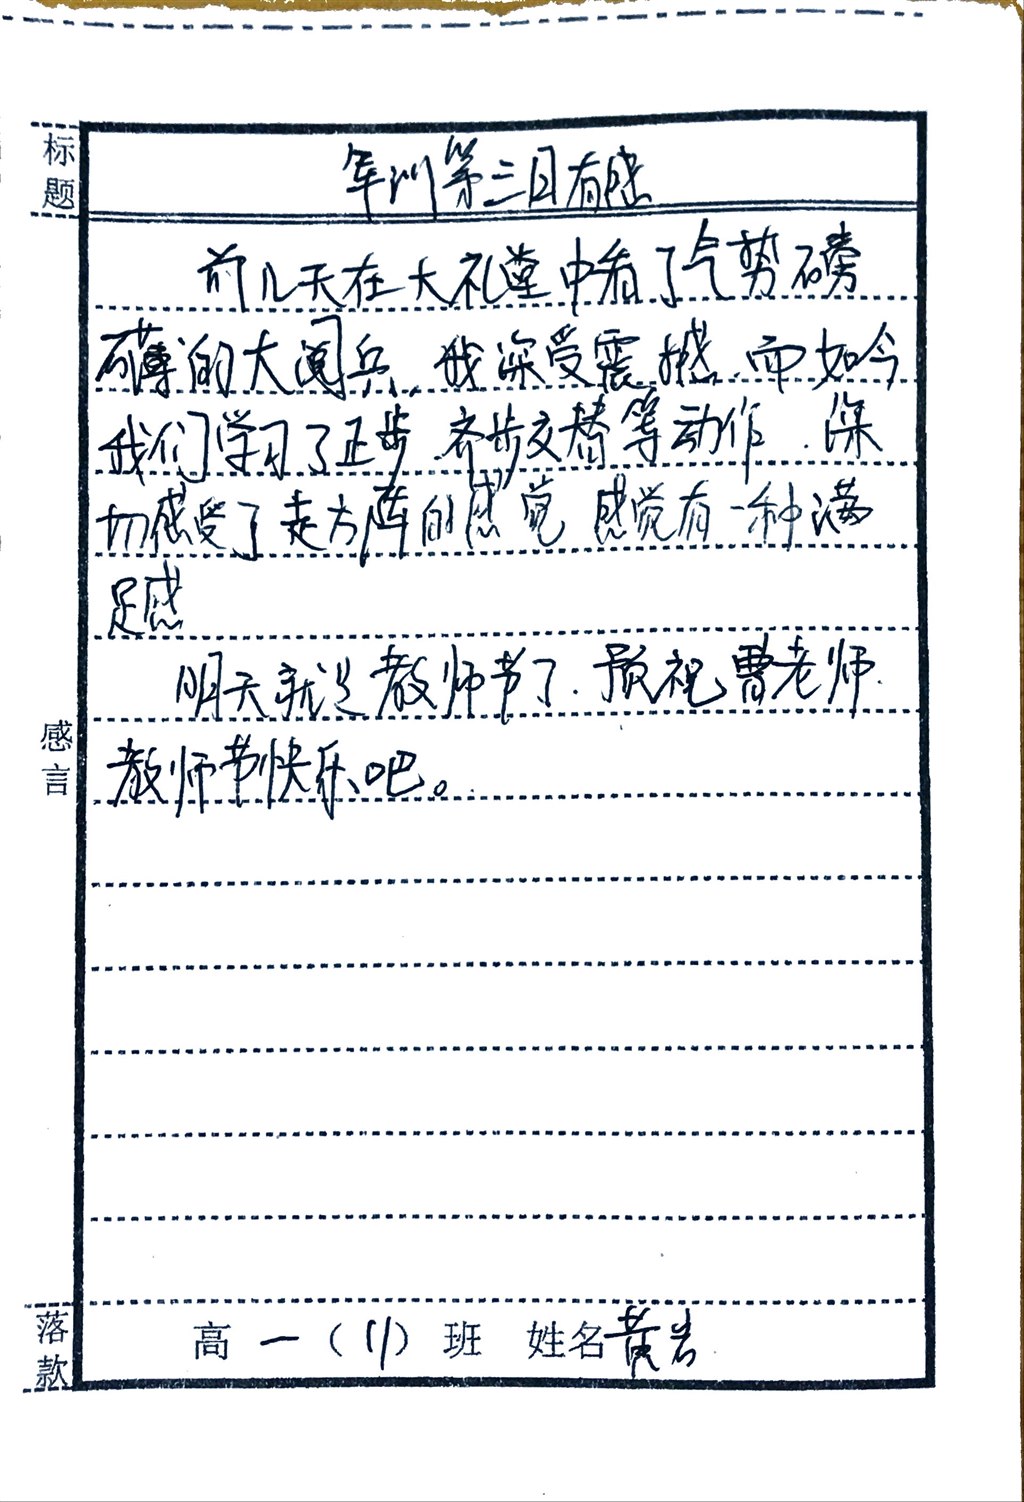 标题
军训第三日有感
前几天在大礼堂中看了气势磅
礴的大阅兵,我深受震撼.而如今
我们学习了正步 齐步交替等动作.深
切感受了走方阵的感觉 感觉有一种满
足感
明天就是教师节了.预祝曹老师.
教师节快乐吧。
感言
落款
高一(11)班 姓名黄岩